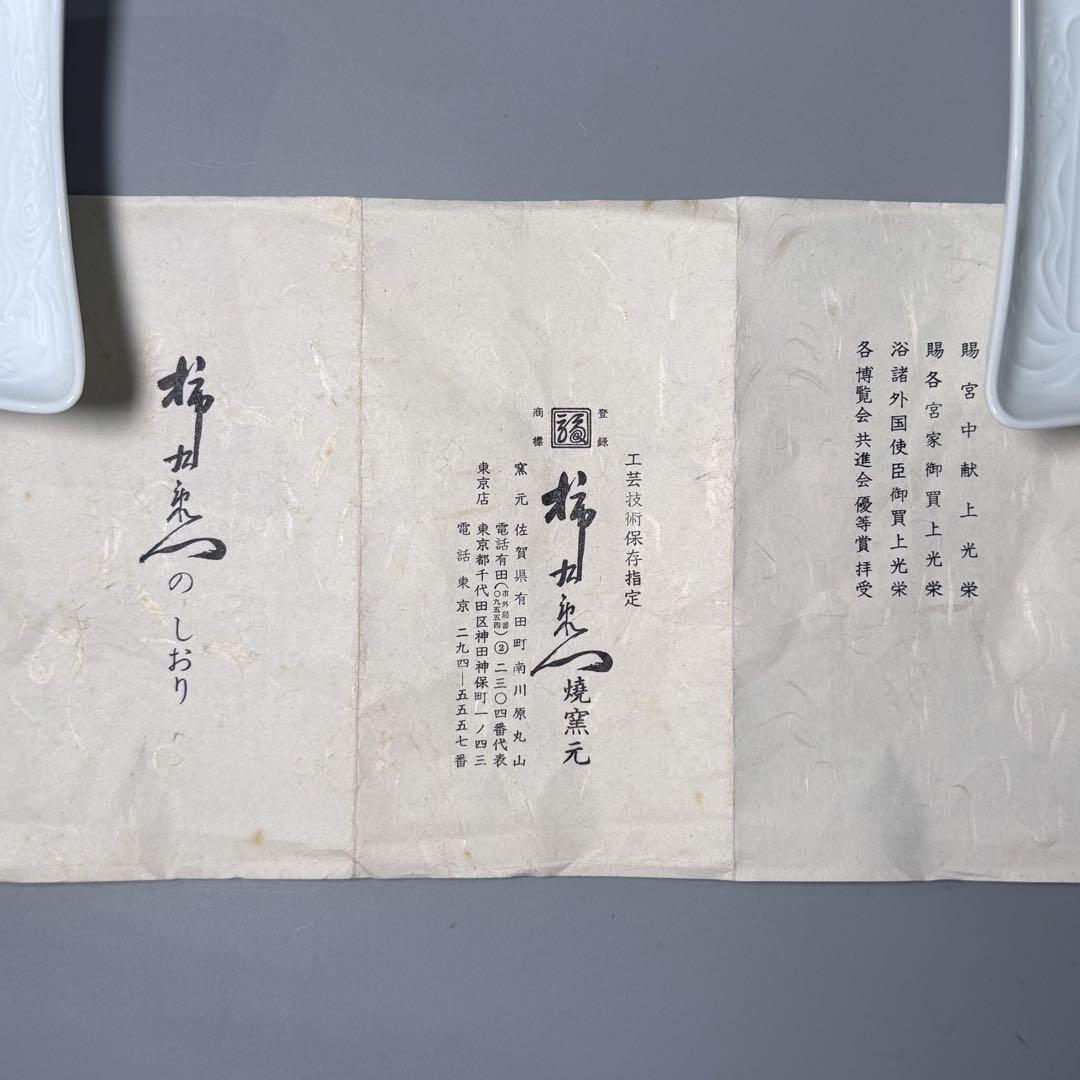 賜宮中献上光栄
賜各宮家御買上光栄
浴諸外国使臣御買上光栄
各博覧会共進会優等賞拝受
工芸技術保存指定
登録
福
商標
柿右衛門
燒窯元
窯元 佐賀県有田町南川原丸山
電話有田(市外局番〇九五五四)②二三〇四番代表
東京店 東京都千代田区神田神保町一ノ四三
電話東京 二九四―五五五七番
柿右衛門のしおり